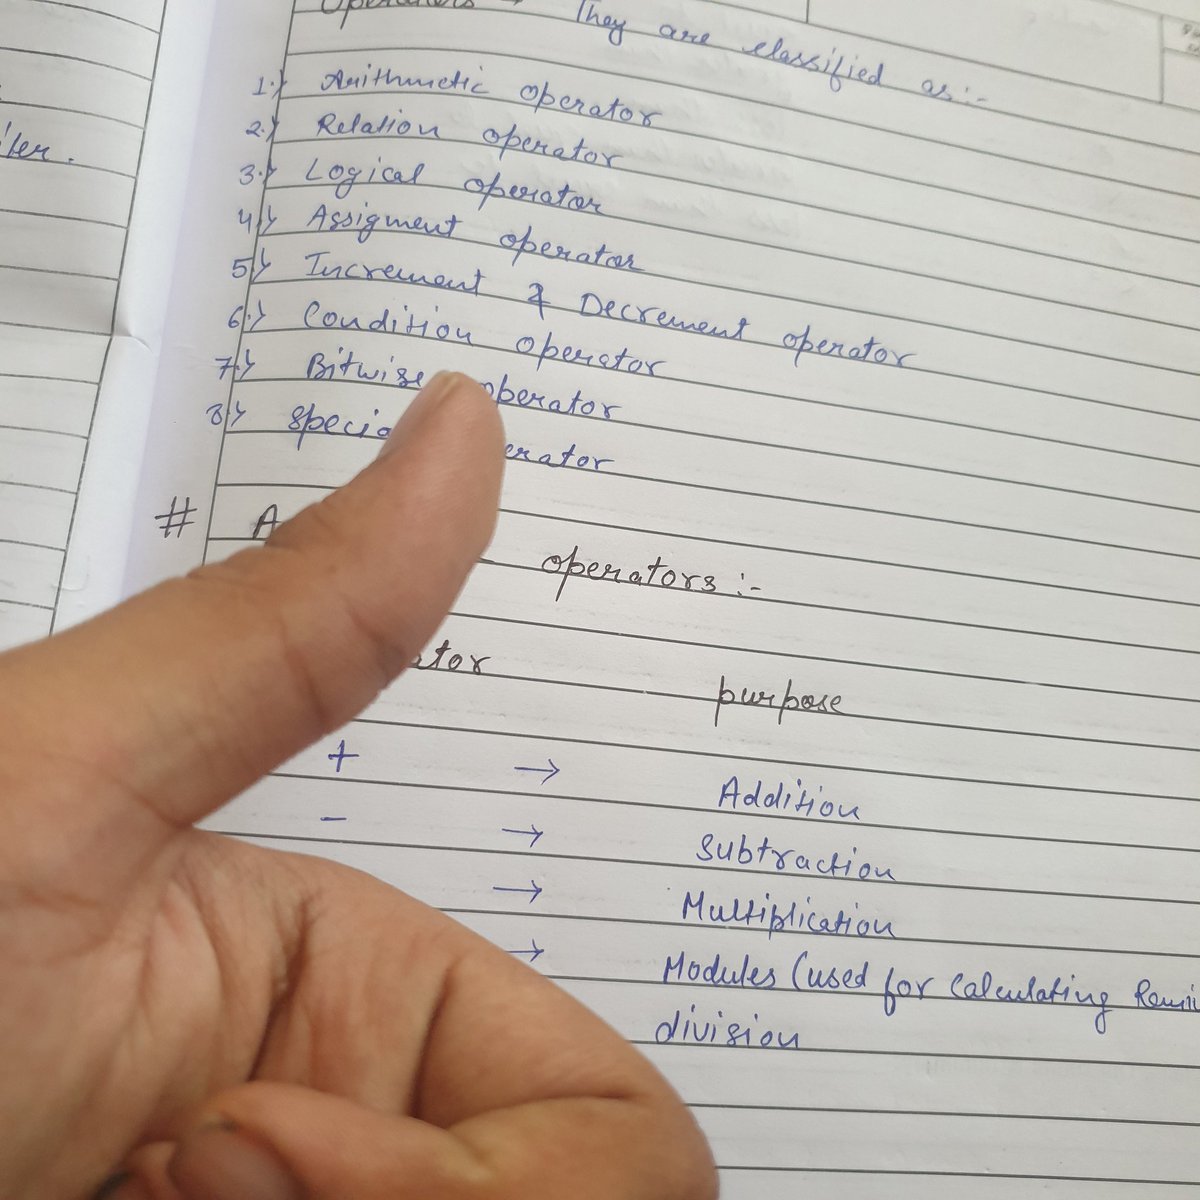 Operators → They are classified as:-
1.> Arithmetic operator
2.> Relation operator
3.> Logical operator
4.> Assigment operator
5.> Increment & Decrement operator
6.> Condition operator
7.> Bitwise operator
8.> special operator
# operators :-
purpose
+ → Addition
- → Subtraction
→ Multiplication
→ Modules (used for calculating
division